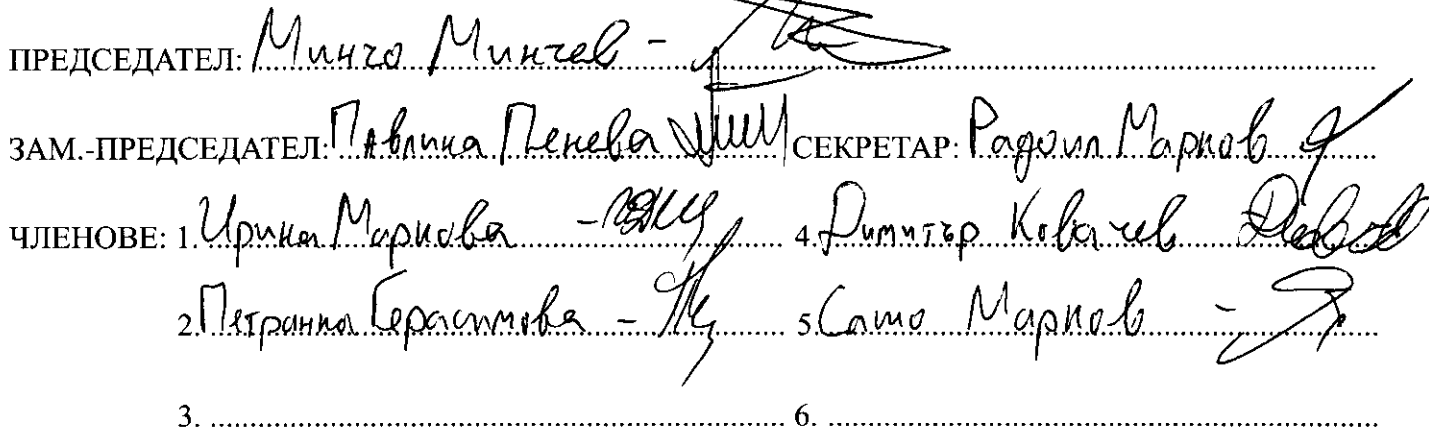 ПРЕДСЕДАТЕЛ: Минчо Минчев -
ЗАМ.-ПРЕДСЕДАТЕЛ: Павлина Пенева СЕКРЕТАР: Радоил Марков
ЧЛЕНОВЕ: 1. Ирина Маркова - 4. Димитър Ковачев
2. Петранка Герасимова - 5. Сашо Марков -
3. 6.